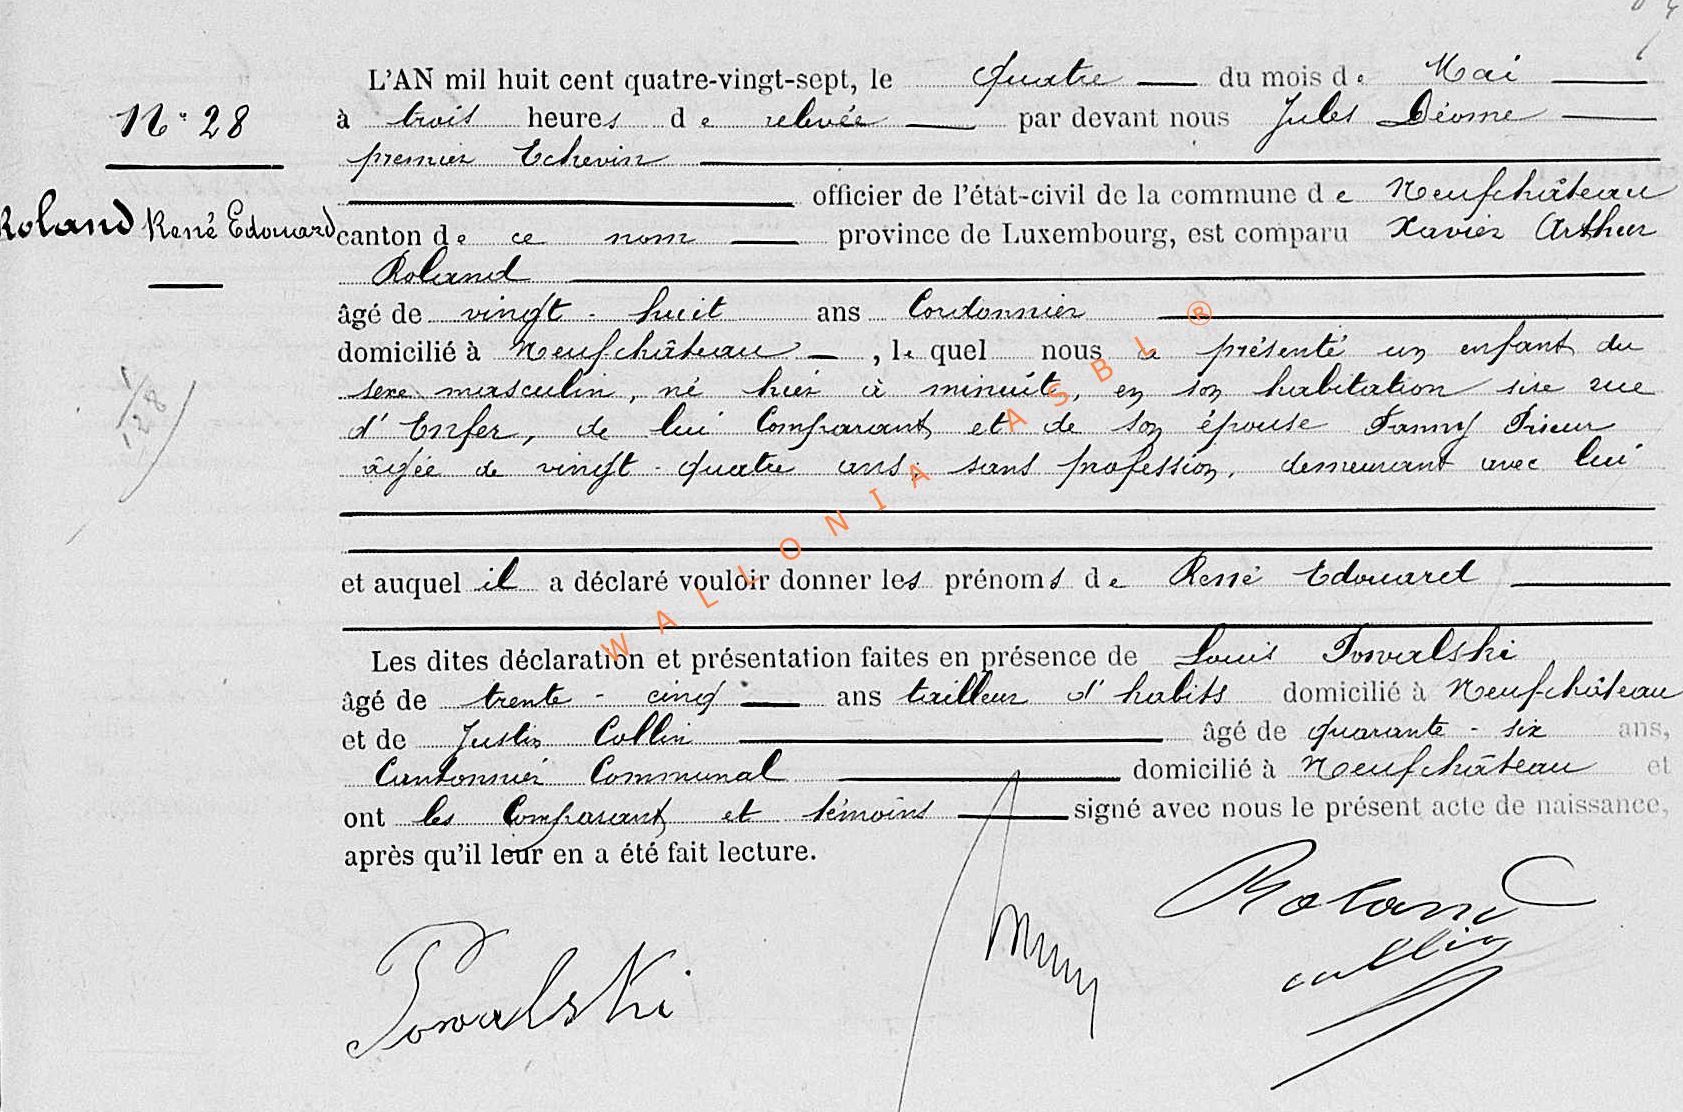 L'AN mil huit cent quatre-vingt-sept, le quatre du mois de Mai
N° 28
à trois heures de relevée par devant nous Jules Déome
premier Echevin
officier de l'état-civil de la commune de Neufchâteau
Roland René Edouard
canton de ce nom province de Luxembourg, est comparu Xavier Arthur
Roland
âgé de vingt-huit ans Cordonnier
domicilié à Neufchâteau, lequel nous a présenté un enfant du
sexe masculin, né hier à minuit, en son habitation sise rue
1/128
d'Enfer, de lui Comparant et de son épouse Fanny Prieur
âgée de vingt-quatre ans, sans profession, demeurant avec lui
et auquel il a déclaré vouloir donner les prénoms de René Edouard
Les dites déclaration et présentation faites en présence de Louis Powalski
âgé de trente-cinq ans tailleur d'habits domicilié à Neufchâteau
et de Justin Collin âgé de quarante-six ans,
Cantonnier Communal domicilié à Neufchâteau et
ont les Comparant et témoins signé avec nous le présent acte de naissance,
après qu'il leur en a été fait lecture.
Roland
Collin
Powalski
WALLONIA ASBL ®